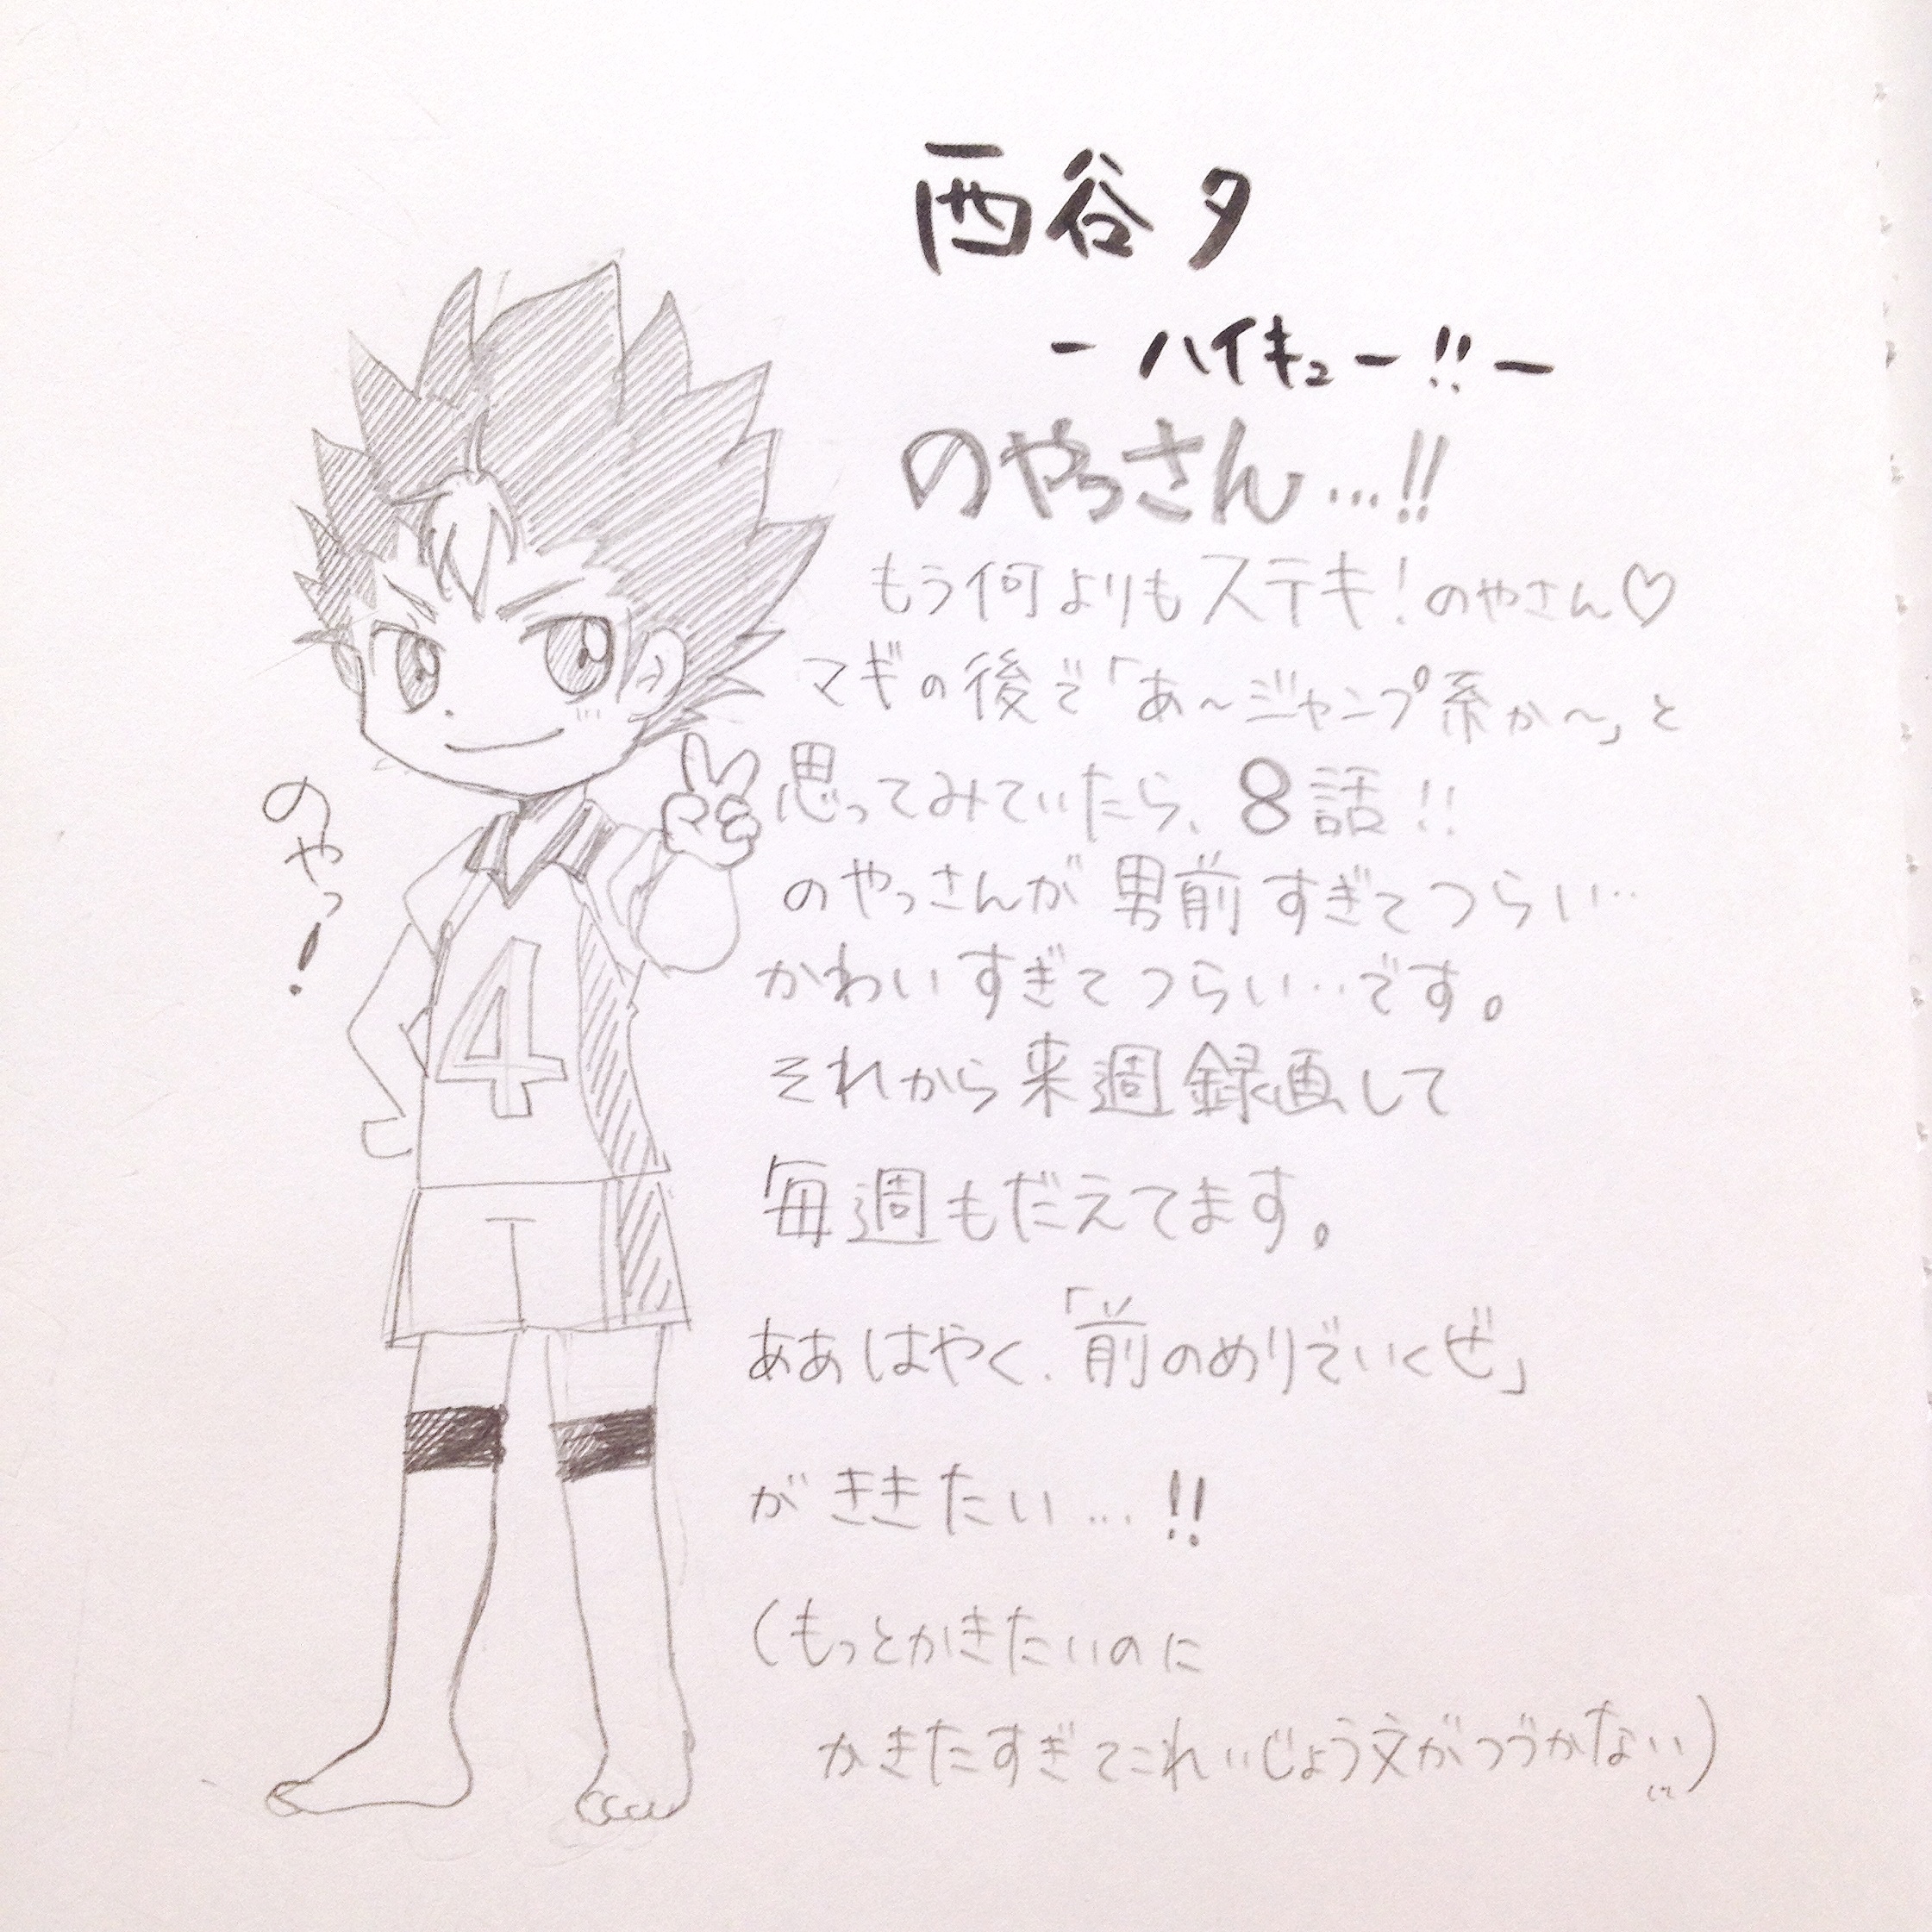 西谷夕
-ハイキュー!!-
のやっさん…!!
もう何よりもステキ!のやさん♡
マギの後で「あ～ジャンプ系か～」と
思ってみていたら、8話!!
のやっさんが男前すぎてつらい…
かわいすぎてつらい…です。
それから来週録画して
毎週もだえてます。
ああはやく、「前のめりでいくぜ」
がききたい…!!
(もっとかきたいのに
かきたすぎてこれいじょう文がつづかない)
のやっ!
4